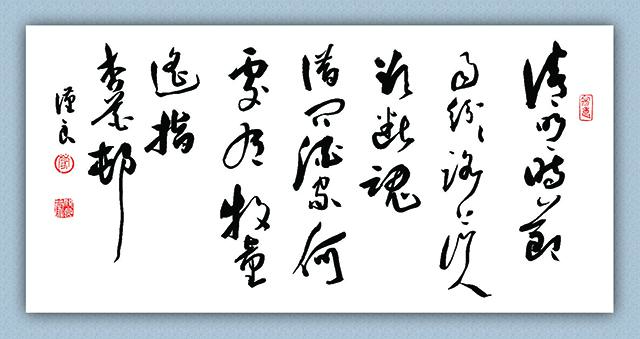 清明時節
雨紛紛路上行人
欲断魂
借問酒家何
處有牧童
遙指
杏花邨